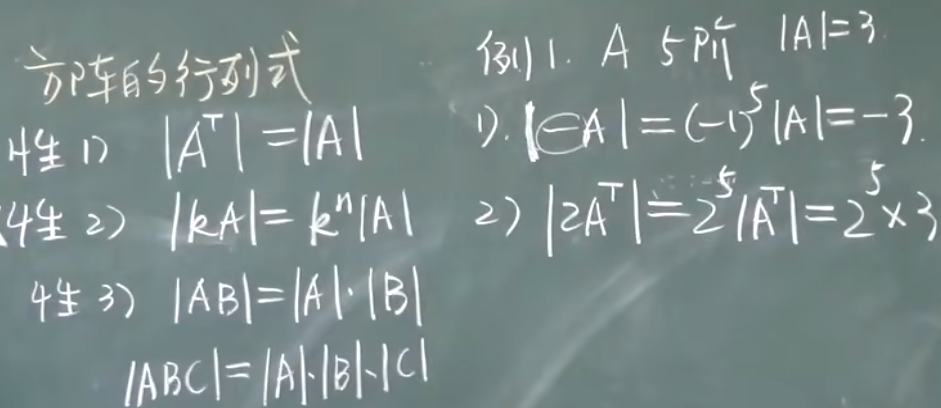 方阵的行列式
性1) |A^T|=|A|
性2) |kA|=k^n|A|
性3) |AB|=|A|·|B|
|ABC|=|A|·|B|·|C|
例1. A 5阶 |A|=3.
1). |-A|=(-1)^5|A|=-3.
2) |2A^T|=2^5|A^T|=2^5×3